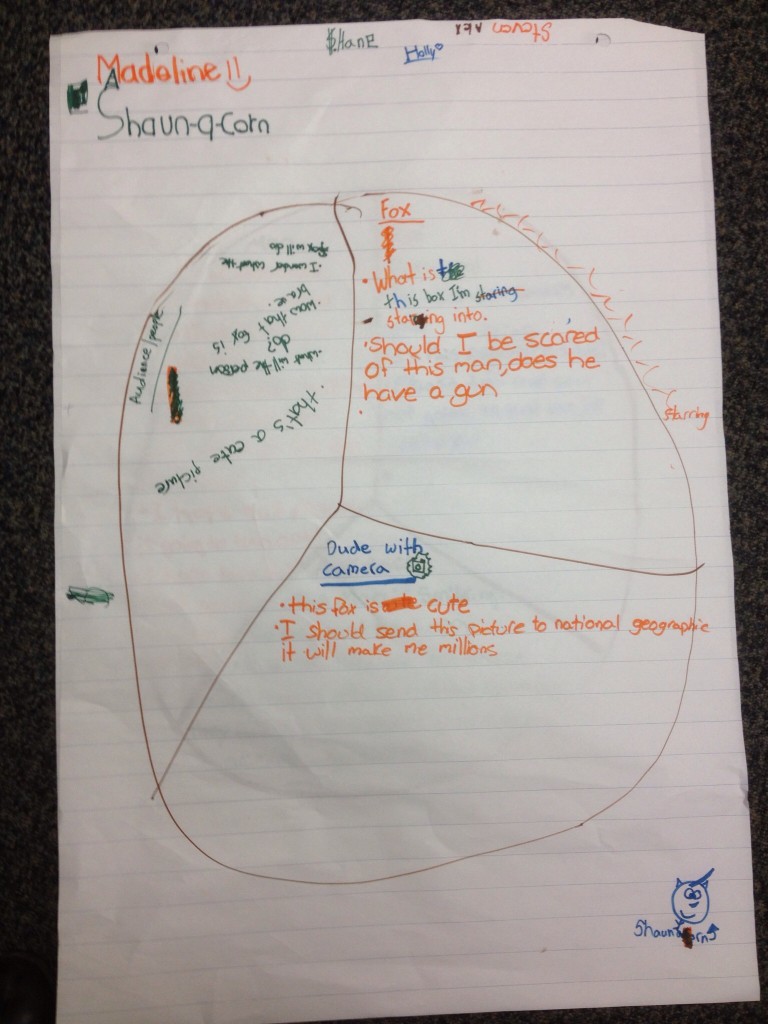 Madeline !!
Shaun-q-corn
Shane
Holly
Steven ALEX
Fox
• What is
this box I'm staring
staring into.
• Should I be scared
of this man, does he
have a gun
starring
Audience/people
• I wonder what the
fox will do
• wow that fox is
brave.
• what will the person
do?
• that's a cute picture
Dude with
camera
• this fox is cute
• I should send this picture to national geographic
it will make me millions